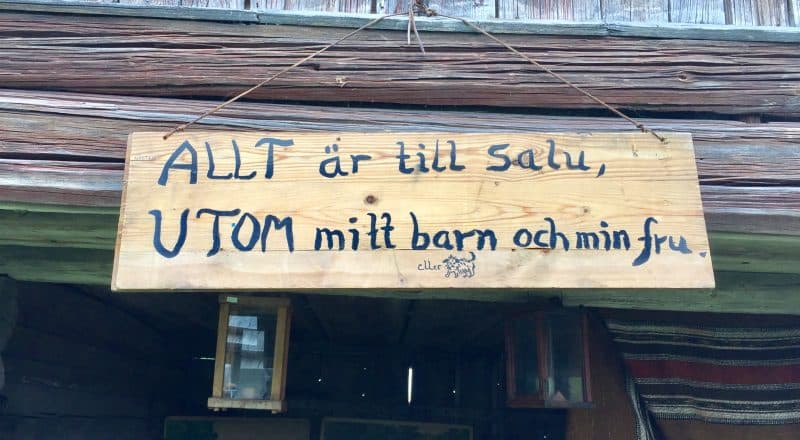 ALLT är till salu,
UTOM mitt barn och min fru.
eller